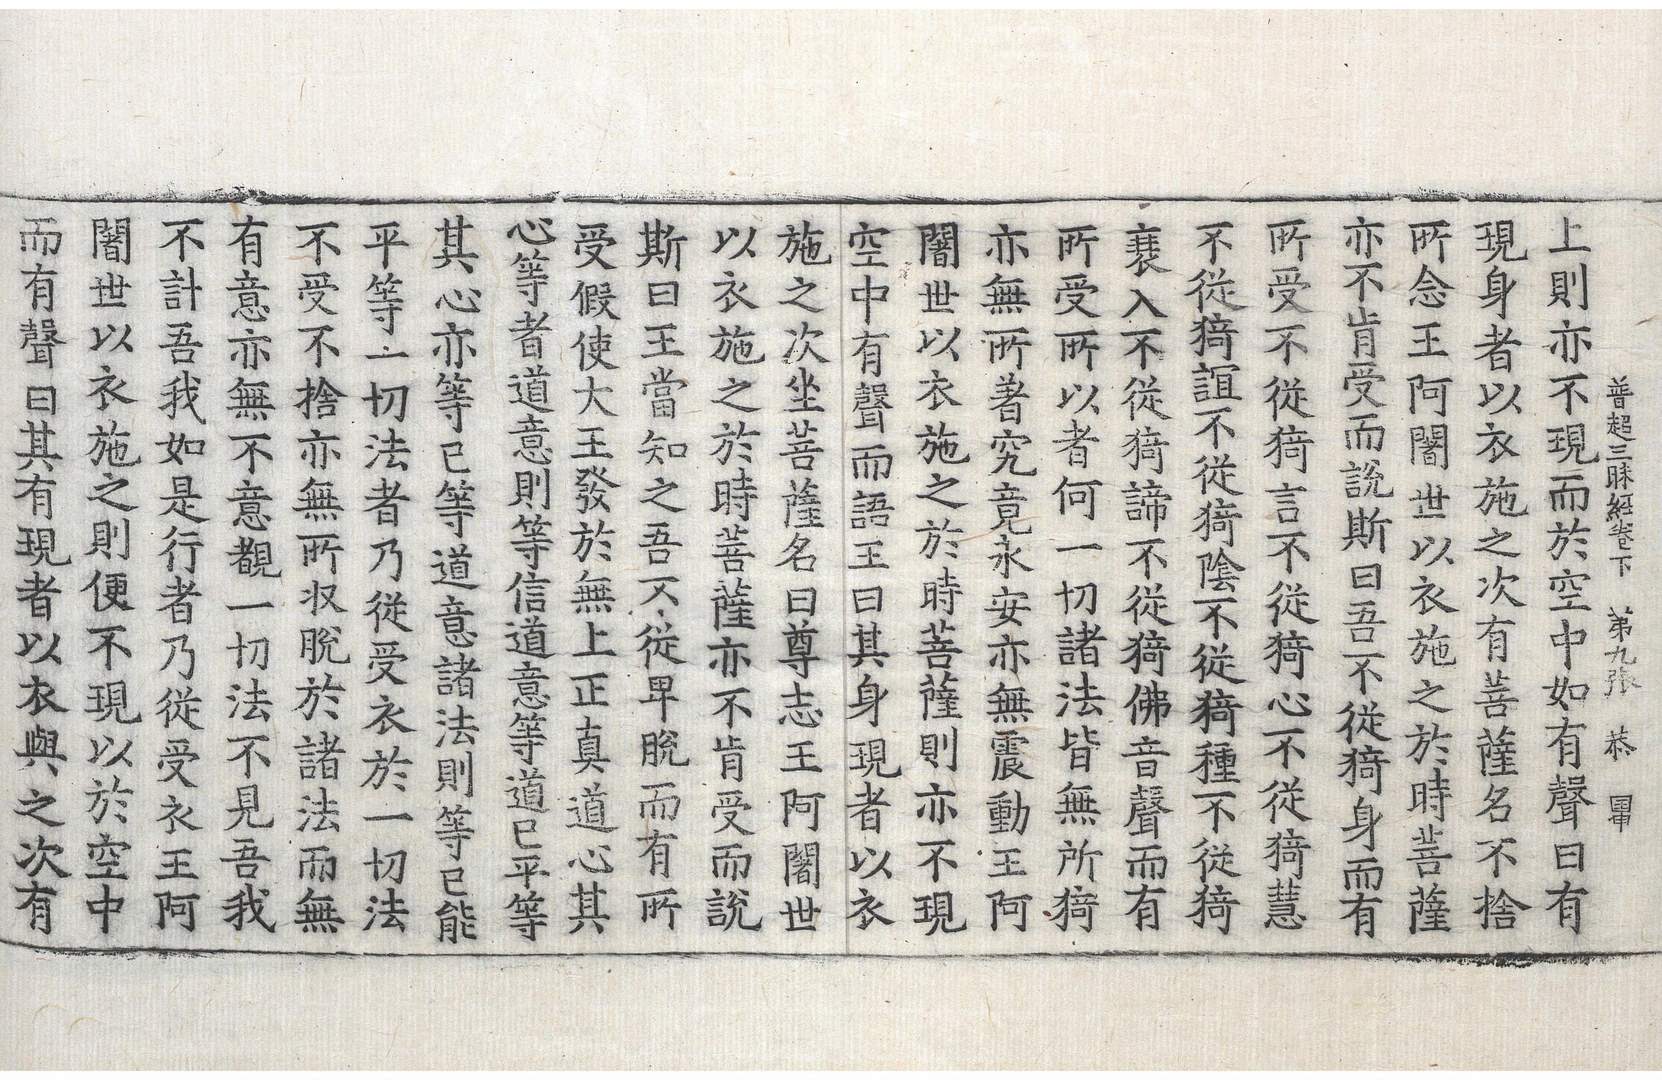 普超三昧經卷下 第九張 恭
上則亦不現而於空中如有聲曰有
現身者以衣施之次有菩薩名不捨
所念王阿闍世以衣施之於時菩薩
亦不肯受而說斯曰吾不從猗身而有
所受不從猗言不從猗心不從猗慧
不從猗誼不從猗陰不從猗種不從猗
衰入不從猗諦不從猗佛音聲而有
所受所以者何一切諸法皆無所猗
亦無所著究竟永安亦無震動王阿
闍世以衣施之於時菩薩則亦不現
空中有聲而語王曰其身現者以衣
施之次坐菩薩名曰尊志王阿闍世
以衣施之於時菩薩亦不肯受而說
斯曰王當知之吾不從卑脫而有所
受假使大王發於無上正真道心其
心等者道意則等信道意等道已平等
其心亦等已等道意諸法則等已能
平等一切法者乃從受衣於一切法
不受不捨亦無所収脫於諸法而無
有意亦無不意覩一切法不見吾我
不計吾我如是行者乃從受衣王阿
闍世以衣施之則便不現以於空中
而有聲曰其有現者以衣與之次有